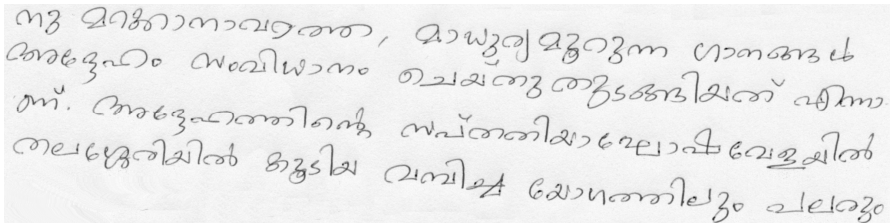 നു മറക്കാനാവാത്ത, മാധുര്യമൂറുന്ന ഗാനങ്ങൾ
അദ്ദേഹം സംവിധാനം ചെയ്തു തുടങ്ങിയത് എന്നാ
ണ്. അദ്ദേഹത്തിന്റെ സപ്തതിയാഘോഷവേളയിൽ
തലശ്ശേരിയിൽ കൂടിയ വമ്പിച്ച യോഗത്തിലും പലരും